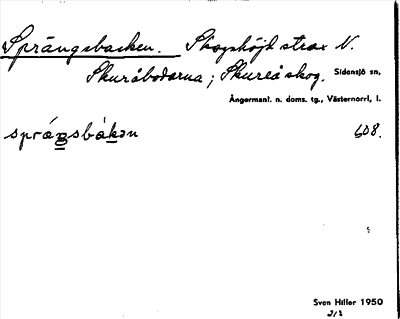 Sprängsbacken. Skogshöjd strax N.
Skuråbodarna; Skureåskog. Sidensjö sn,
Ångermanl. n. doms. tg., Västernorrl, l.
språŋsbákən 608.
Sven Hiller 1950